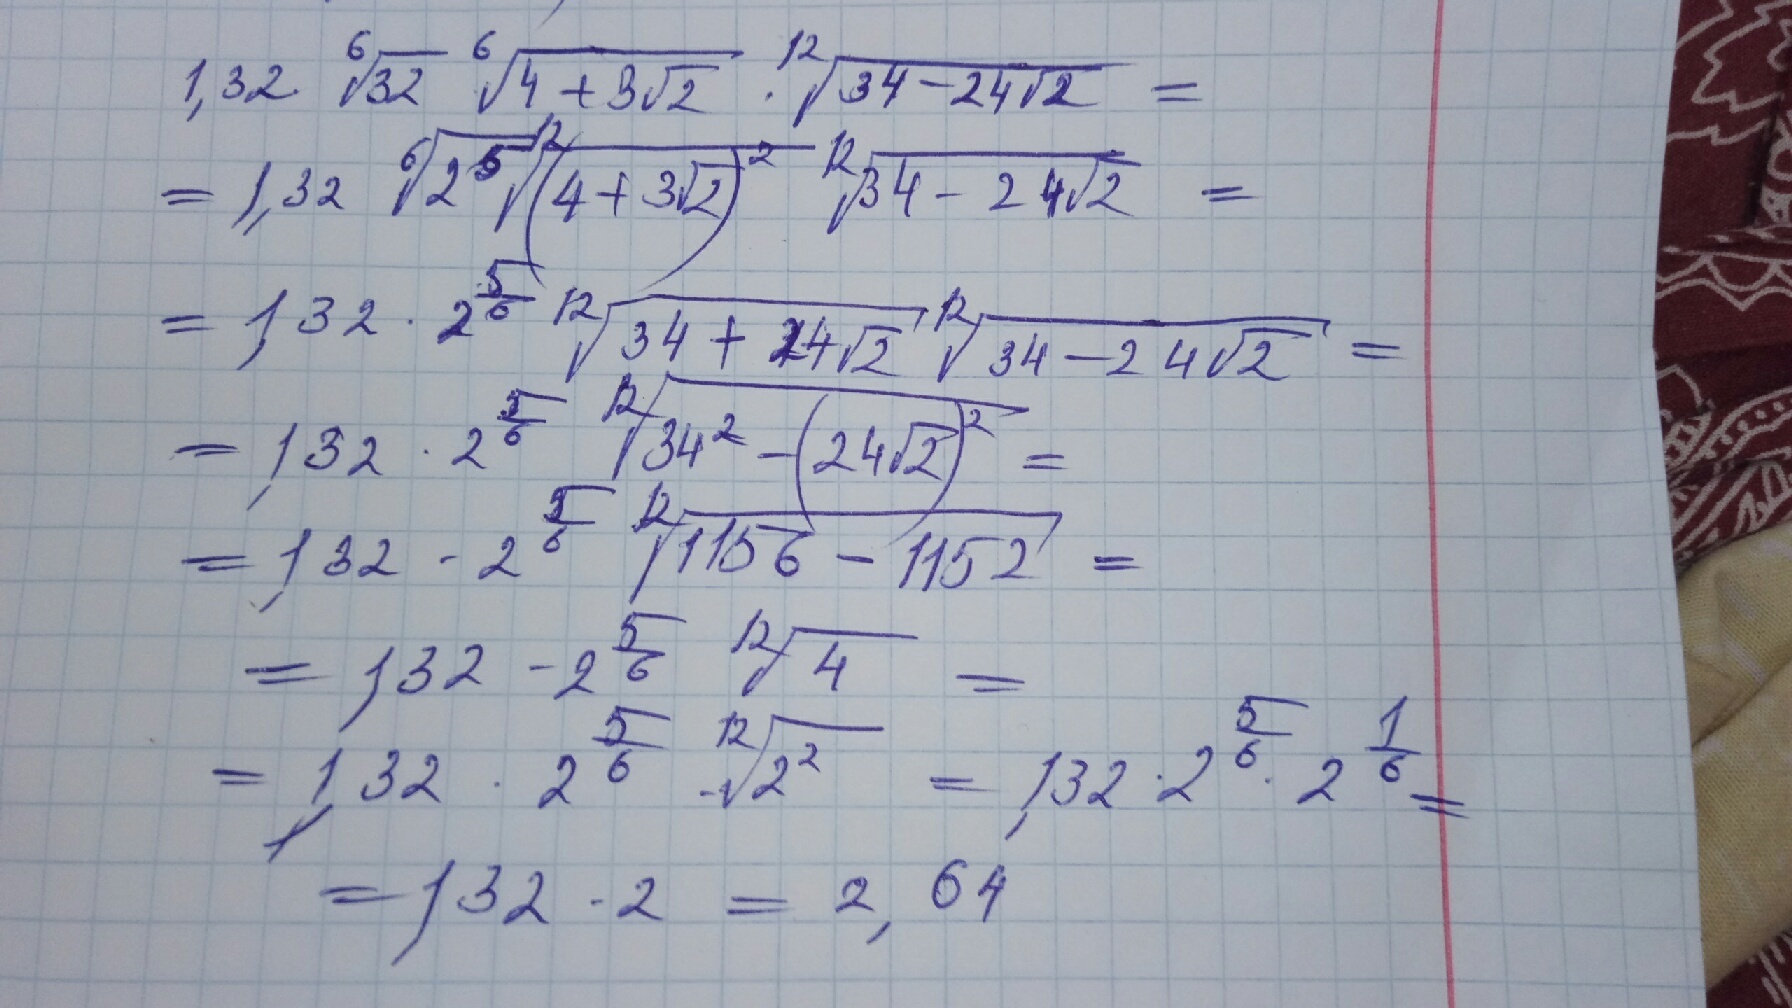 1,32 · ⁶√32 · ⁶√(4+3√2) · ¹²√(34−24√2) =
= 1,32 ⁶√(2⁵) ¹²√((4+3√2)²) ¹²√(34−24√2) =
= 1,32 · 2^(5/6) ¹²√(34+24√2) ¹²√(34−24√2) =
= 1,32 · 2^(5/6) ¹²√(34²−(24√2)²) =
= 1,32 · 2^(5/6) ¹²√(1156−1152) =
= 1,32 · 2^(5/6) ¹²√4 =
= 1,32 · 2^(5/6) · ¹²√(2²) = 1,32 · 2^(5/6) · 2^(1/6) =
= 1,32 · 2 = 2,64